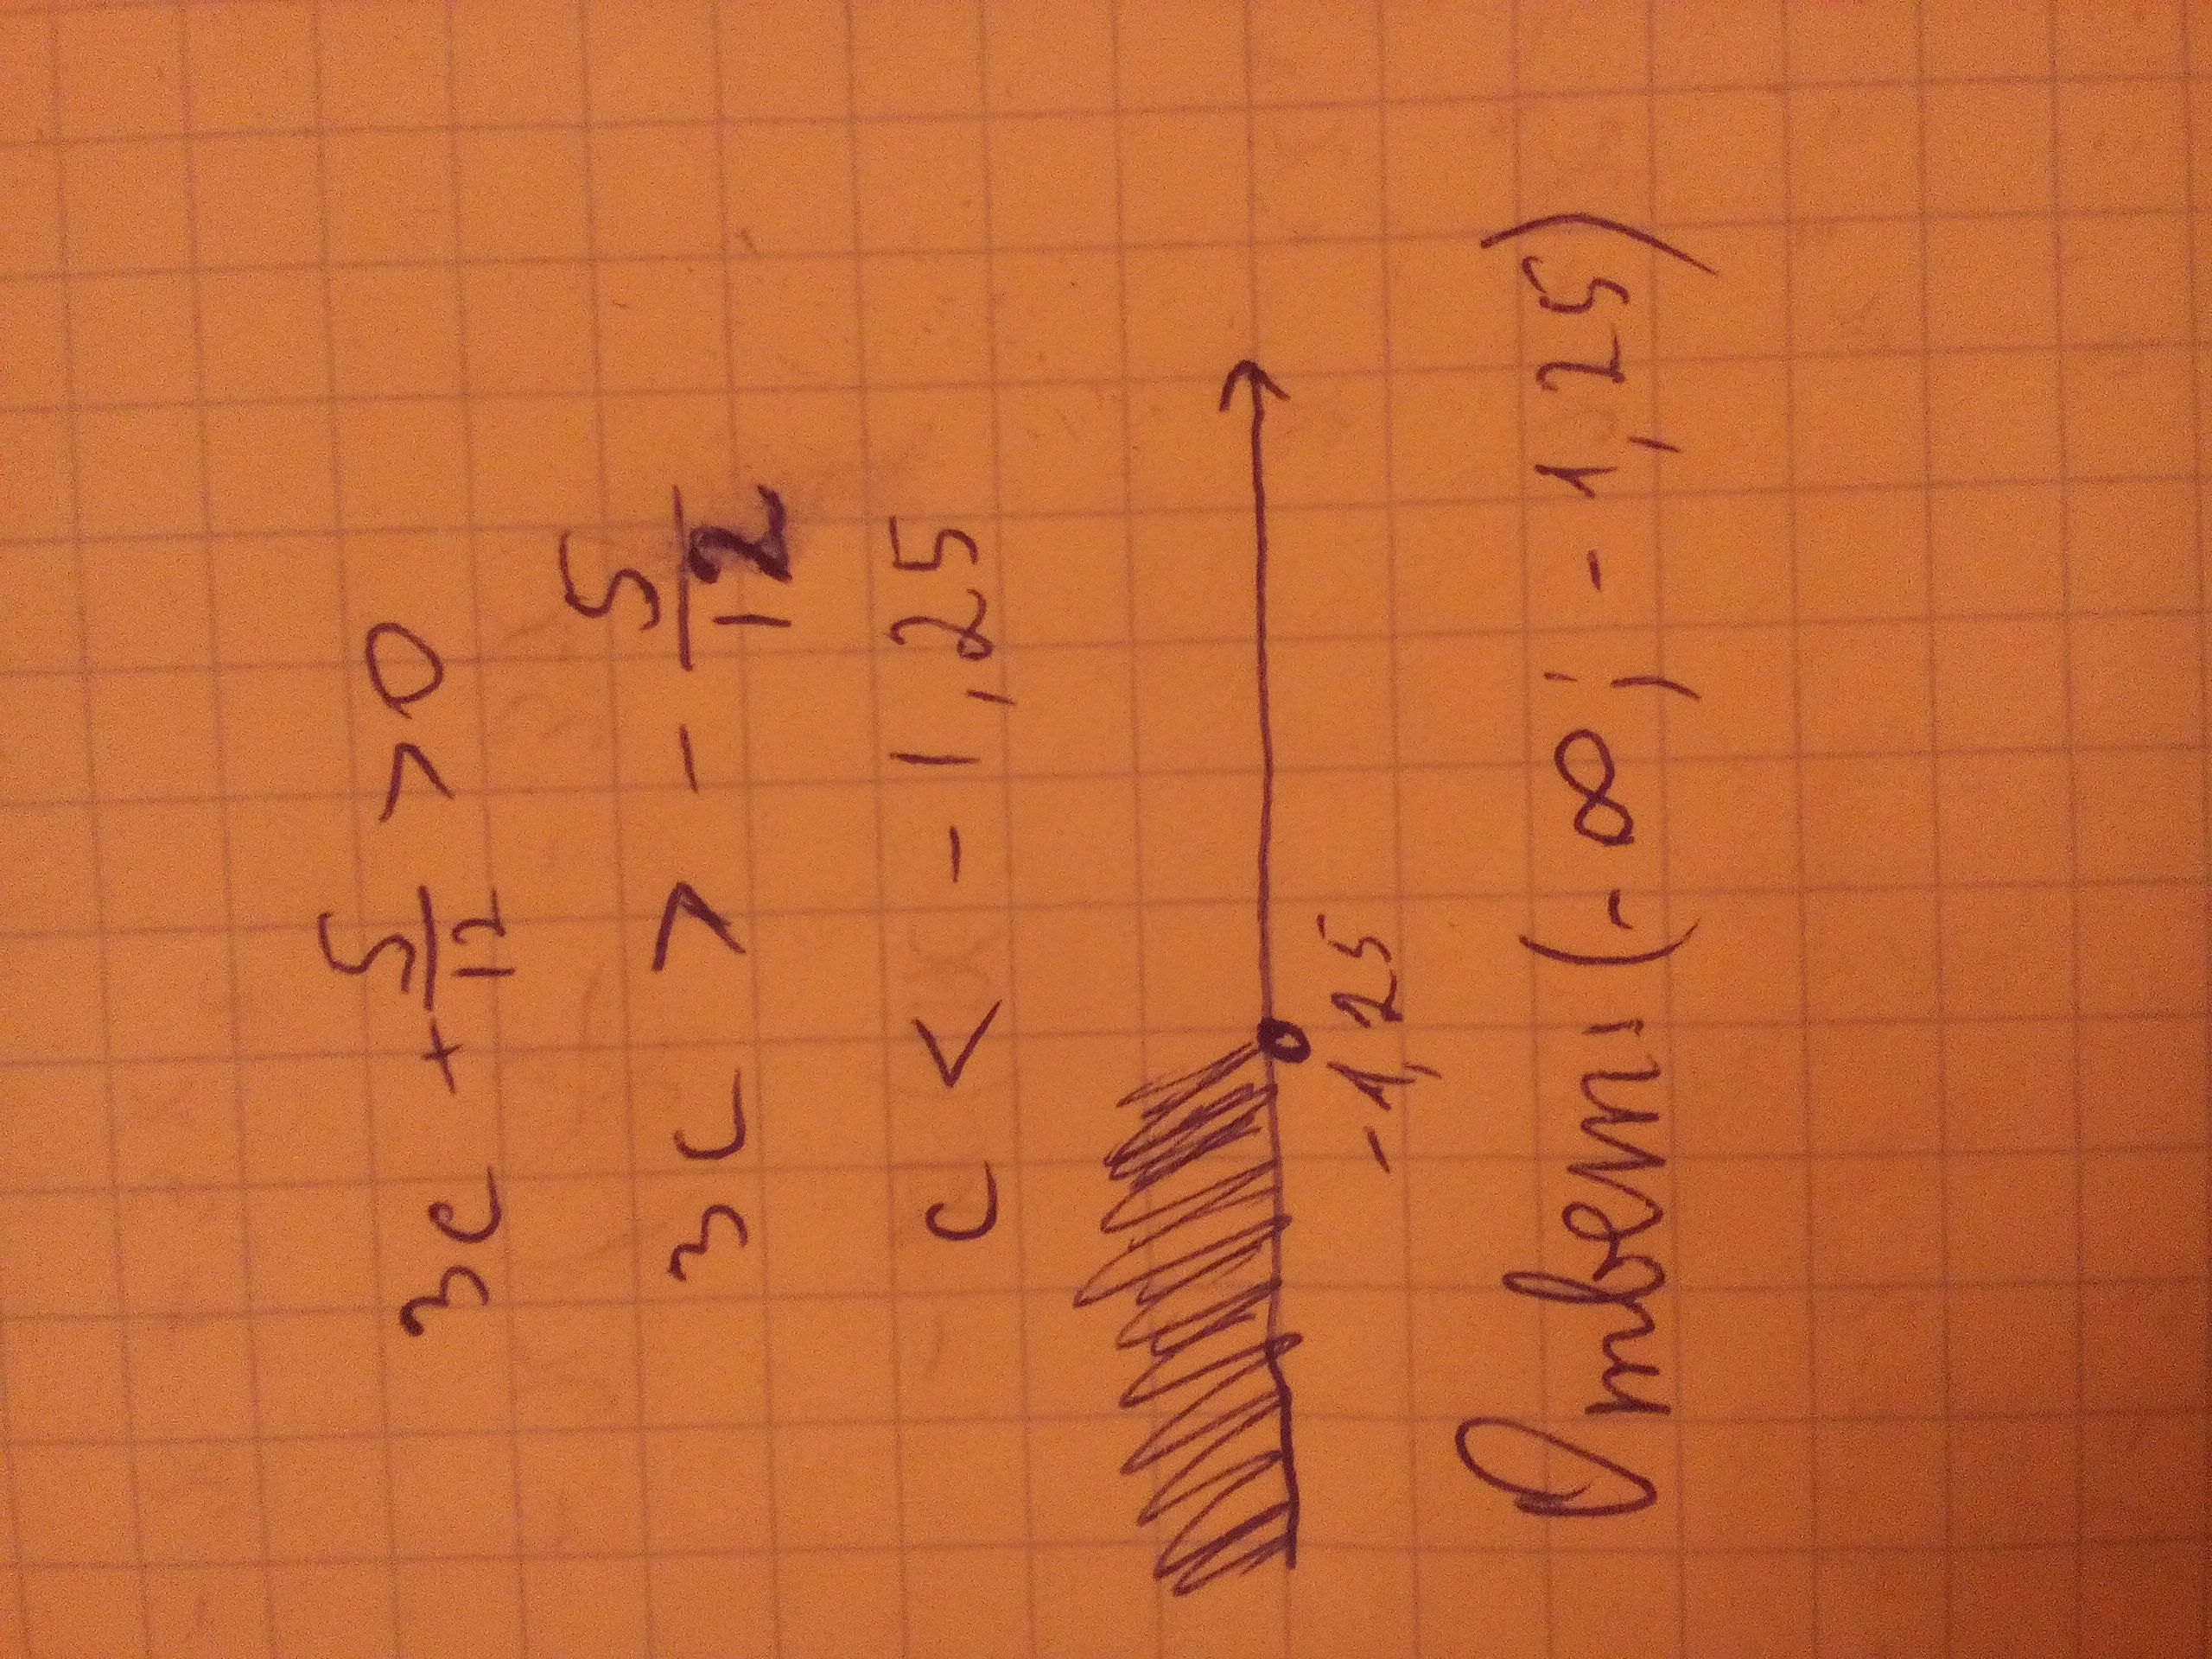 3c + 5/12 > 0
3c > - 5/12
c < - 1,25
-1,25
Ответ: (-∞; -1,25)